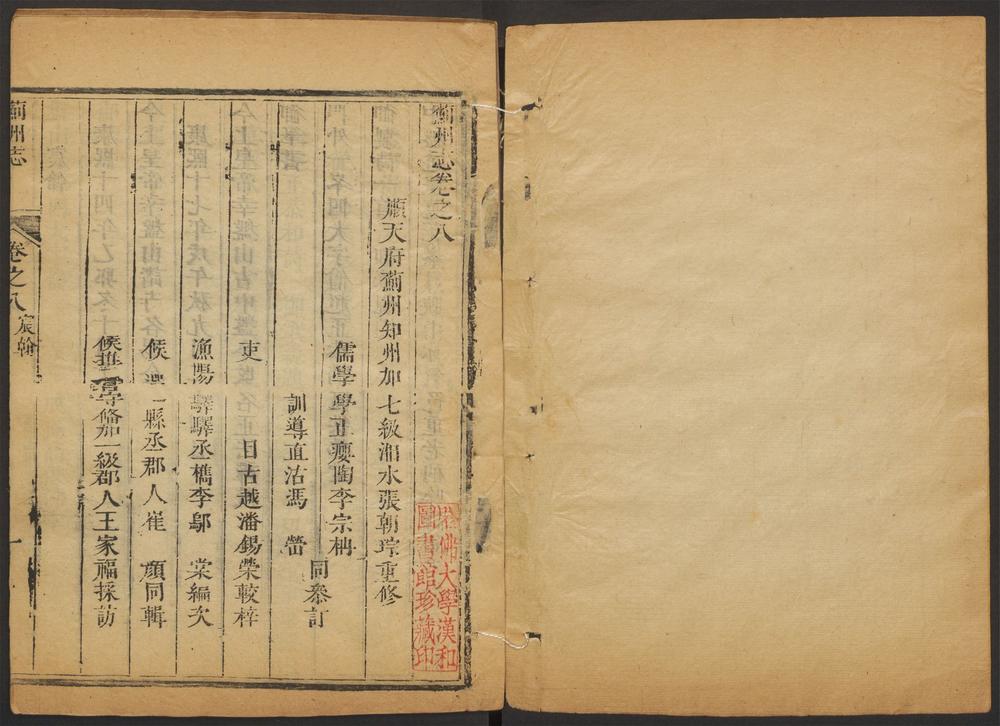 薊州志卷之八
順天府薊州知州加七級湘水張朝琮重修
儒學學正癭陶李宗柟
訓導直沽馮
同叅訂
吏目古越潘錫榮較梓
漁陽驛驛丞檇李鄔棠編次
候選縣丞郡人崔顧同輯
候推守備加一級郡人王家福採訪
薊州志
卷之八
宸翰
一
哈佛大學漢和
圖書館珍藏印